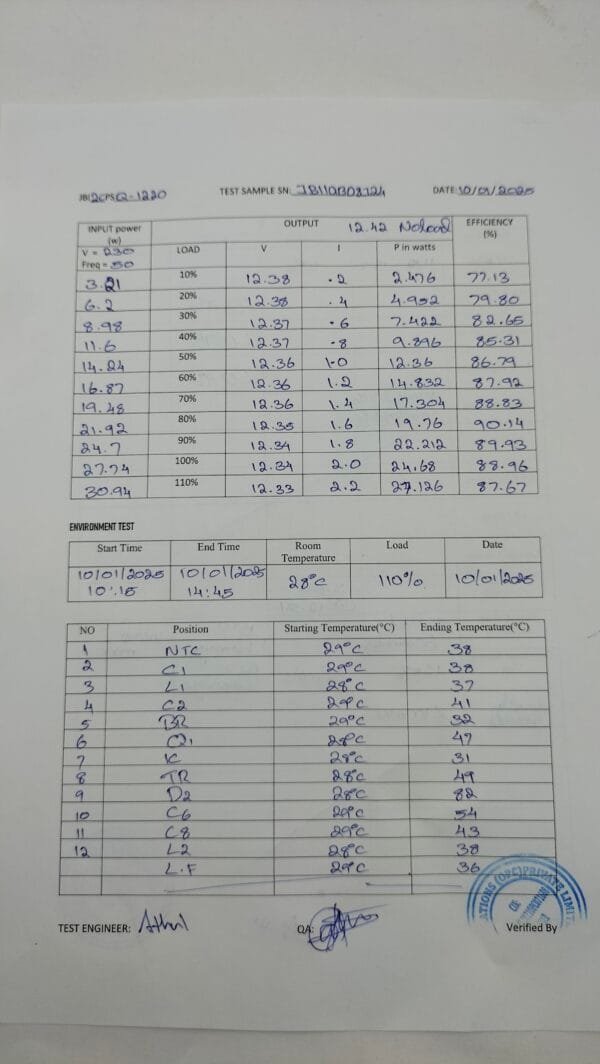 JBI2CPSQ-1220 TEST SAMPLE SN: JB110B08124 DATE 10/01/2025
INPUT power (w) OUTPUT 12.42 Noload EFFICIENCY (%)
V = 230 Freq = 50 LOAD V I P in watts
3.21 10% 12.38 .2 2.476 77.13
6.2 20% 12.38 .4 4.952 79.80
8.98 30% 12.37 .6 7.422 82.65
11.6 40% 12.37 .8 9.896 85.31
14.24 50% 12.36 1.0 12.36 86.79
16.87 60% 12.36 1.2 14.832 87.92
19.48 70% 12.36 1.4 17.304 88.83
21.92 80% 12.35 1.6 19.76 90.14
24.7 90% 12.34 1.8 22.212 89.93
27.74 100% 12.34 2.0 24.68 88.96
30.94 110% 12.33 2.2 27.126 87.67
ENVIRONMENT TEST
Start Time End Time Room Temperature Load Date
10/01/2025 10:15 10/01/2025 14:45 28°C 110% 10/01/2025
NO Position Starting Temperature(°C) Ending Temperature(°C)
1 NTC 29°C 38
2 C1 29°C 38
3 L1 28°C 37
4 C2 29°C 41
5 BR 29°C 32
6 Q1 28°C 47
7 IC 28°C 31
8 TR 28°C 49
9 D2 28°C 82
10 C6 29°C 54
11 C8 29°C 43
12 L2 28°C 38
L.F 29°C 36
TEST ENGINEER: Athul QA: Verified By
ATIONS (OPC) PRIVATE LIMIT